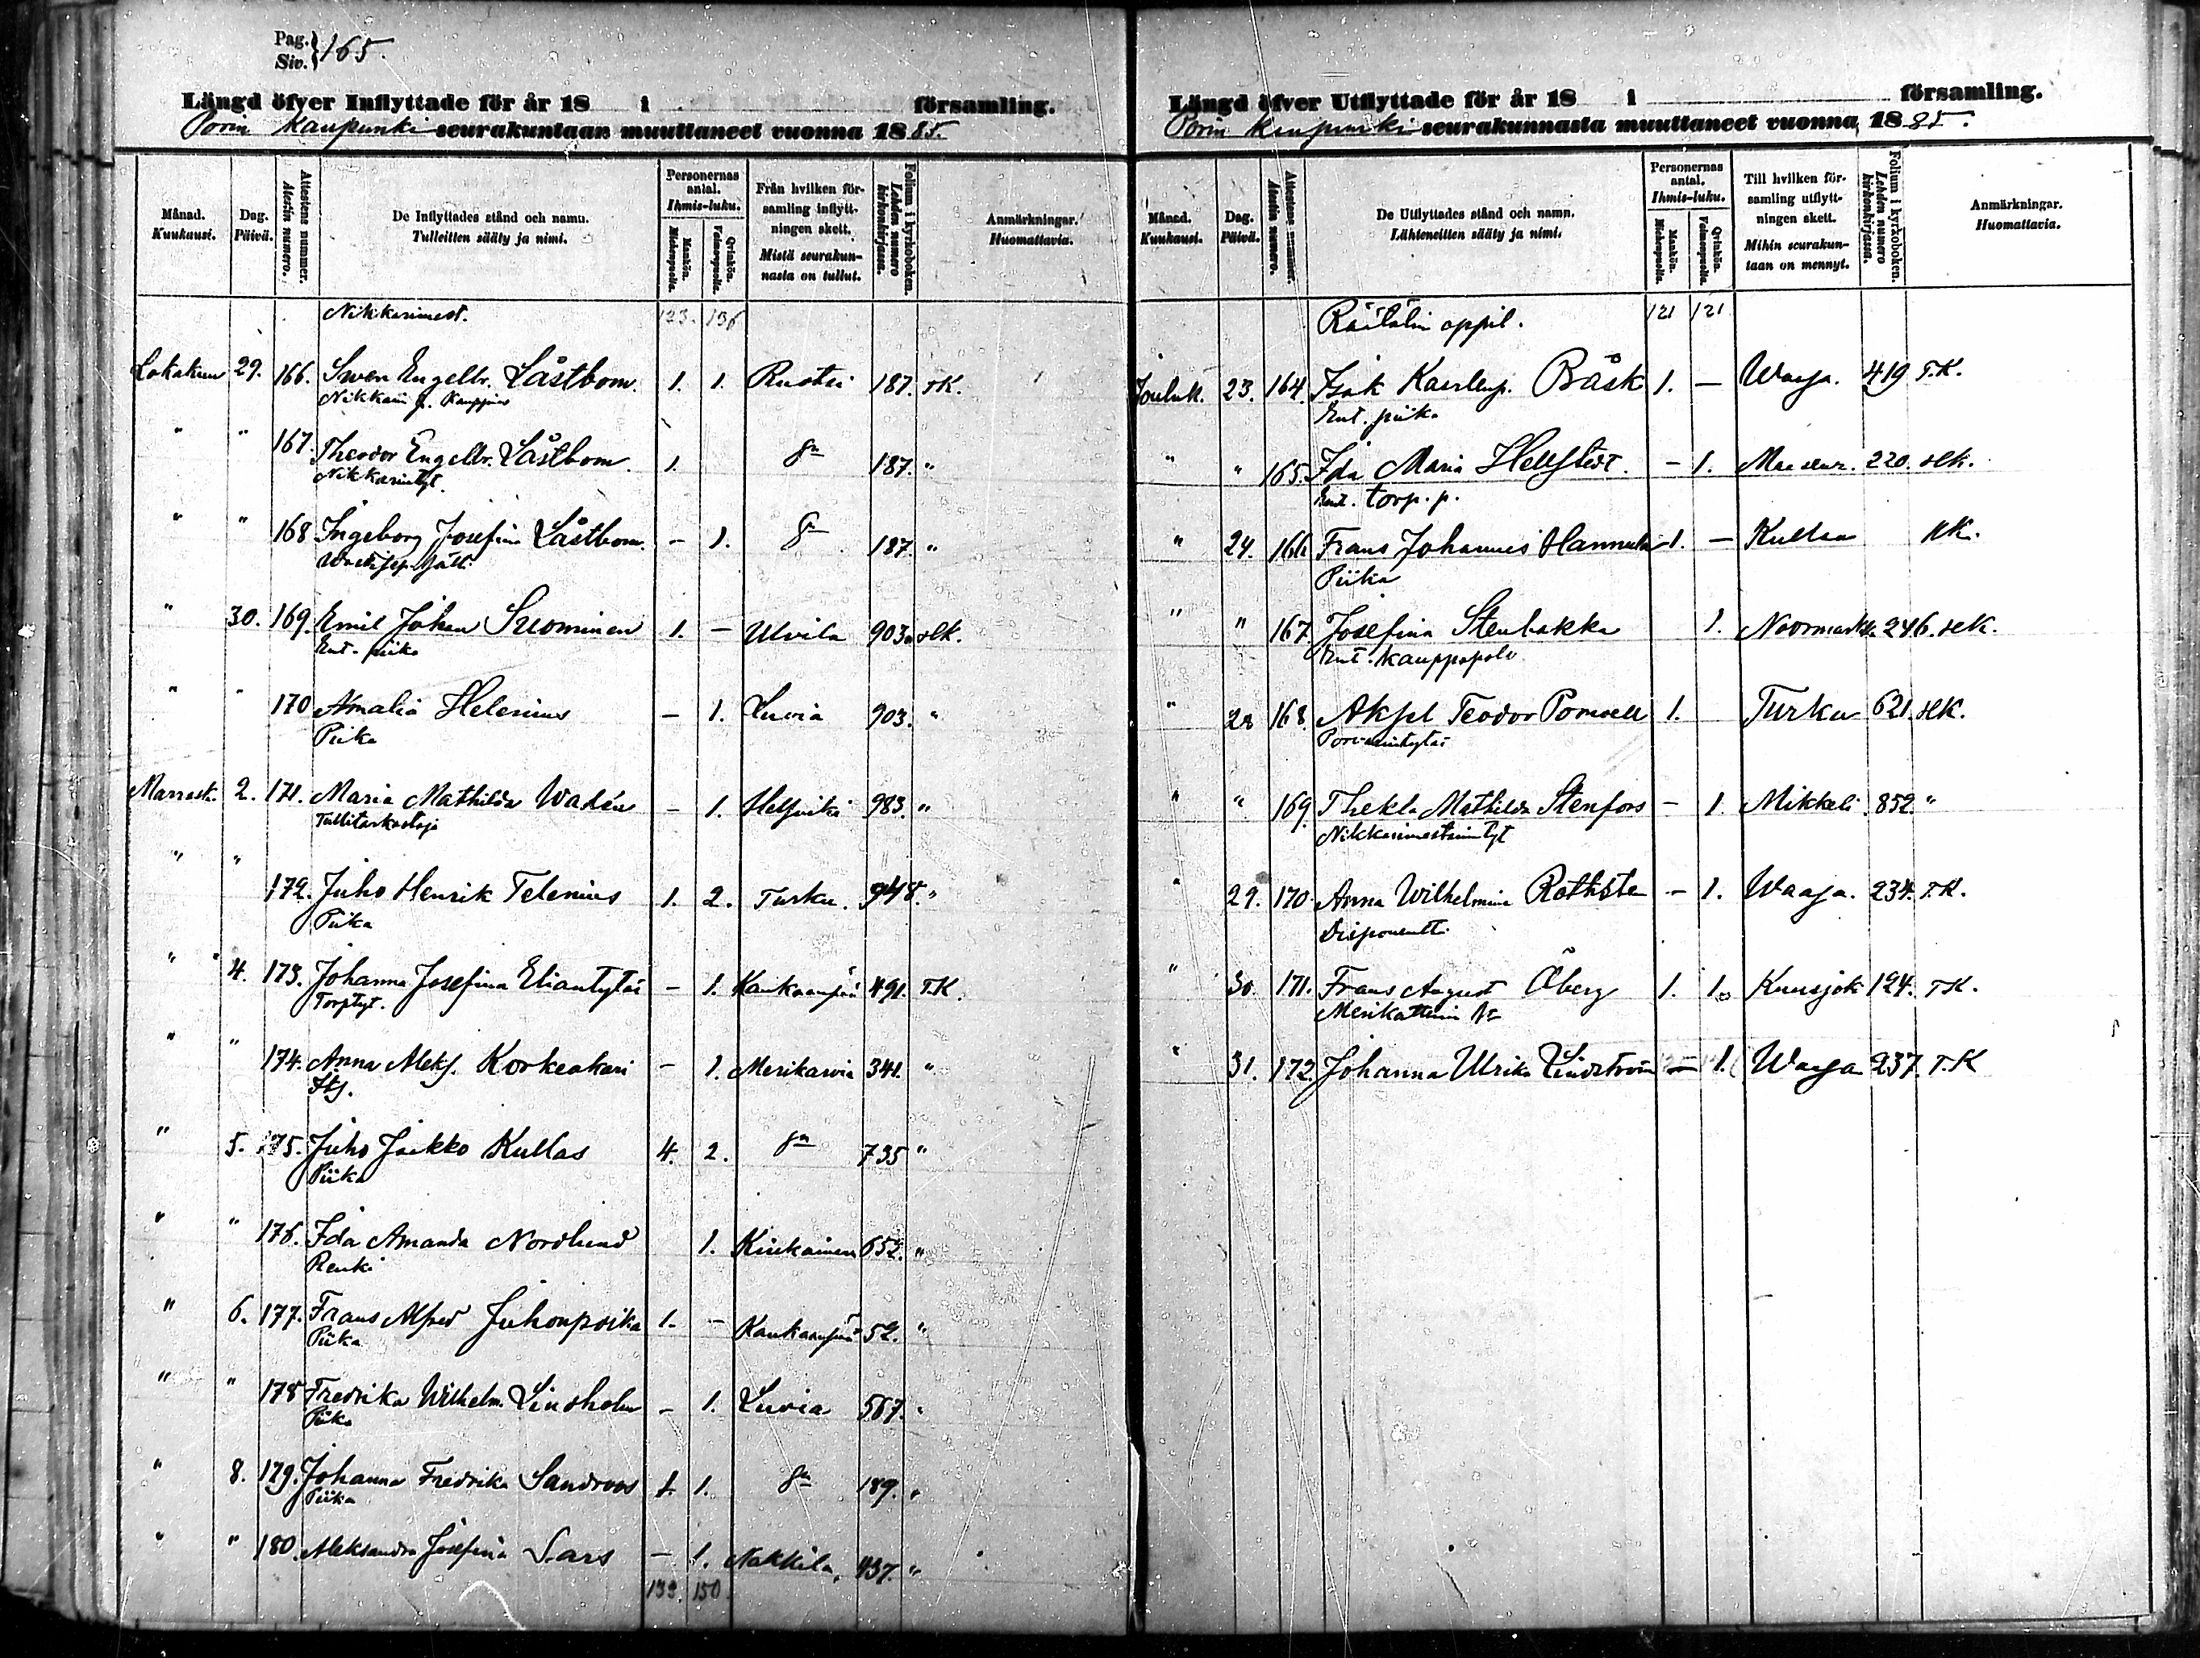 Pag. Siv. } 165.
Längd öfver Inflyttade för år 18 i församling.
Porin Kaupunki seurakuntaan muuttaneet vuonna 1885.
Månad. Kuukausi.
Dag. Päivä.
Attestens nummer. Atestin numero.
De Inflyttades stånd och namn. Tulleitten sääty ja nimi.
Personernas antal. Ihmis-luku.
Mankön. Miehenpuolta.
Qvinkön. Vaimonpuolta.
Från hvilken församling inflyttningen skett. Mistä seurakunnasta on tullut.
Folium i kyrkoboken. Lehden numero kirkonkirjassa.
Anmärkningar. Huomattavia.
Nikkarimest. 123. 136
Lokakuu 29. 166. Swen Engelbr. Låstbom. 1. 1. Ruotsi 187. TK.
Nikkari
" " 167. Theodor Engelbr. Låstbom. 1. 187. "
Nikkarintyt.
" " 168 Ingeborg Josefina Låstbom. - 1. 187. "
" 30. 169. Emil Johan Suominen 1. - Ulvila 903. slk.
Ent. piika
" " 170 Amalia Helenius - 1. Luvia 903. "
Piika
Marrask. 2. 171. Maria Mathilda Wadén - 1. Helsinki 983. "
Tullitarkastaja
" " 172. Juho Henrik Telenius 1. 2. Turku. 948. "
Piika
" 4. 173. Johanna Josefina Eliantytär - 1. Kankaanpää 491. T.K.
Torptyt.
" " 174. Anna Aleks. Korkeakari - 1. Merikarvia 341. "
Itj.
" 5. 175. Juho Jaakko Kullas 4. 2. 735 "
Piika
" " 176. Ida Amanda Nordlund 1. Kiukainen 652. "
Renki
" 6. 177. Frans Alfred Juhonpoika 1. - Kankaanpää 52. "
Piika
" " 178 Fredrika Wilhelm. Lindholm - 1. Luvia 567. "
Piika
" 8. 179. Johanna Fredrika Sandroos 1. 1. 189. "
Piika
" " 180. Aleksandra Josefina Sars - 1. Nakkila, 437. "
139. 150.
Längd öfver Utflyttade för år 18 i församling.
Porin Kaupunki seurakunnasta muuttaneet vuonna 1885.
Månad. Kuukausi.
Dag. Päivä.
Attestens nummer. Atestin numero.
De Utflyttades stånd och namn. Lähteneitten sääty ja nimi.
Personernas antal. Ihmis-luku.
Mankön. Miehenpuolta.
Qvinkön. Vaimonpuolta.
Till hvilken församling utflyttningen skett. Mihin seurakuntaan on mennyt.
Folium i kyrkoboken. Lehden numero kirkonkirjassa.
Anmärkningar. Huomattavia.
Räätälin oppil. 121 121
Jouluk. 23. 164. Isak Båsk 1. - Waasa. 419 T.K.
Ent. piika
" " 165. Ida Maria Hellstedt. - 1. Maaseur. 220. slk.
Ent. torp. p.
" 24. 166 Frans Johannes Hannula 1. - Kullaa
Piika
" " 167. Josefina Stenbakka 1. Noormarkku 246. slk.
Ent. kauppapalv
" 28 168. Aksel Teodor 1. Turku 621. slk.
Porvarintytär
" " 169. Thekla Mathilda Stenfors - 1. Mikkeli 852. "
Nikkarimestarintyt
" 29. 170 Anna Wilhelmina - 1. Waasa. 234. T.K.
Disponentti
" 30. 171. Frans August Åberg 1. 1. Kuusjoki 124. TK.
" 31. 172. Johanna Ulrika Lindström - 1. Waasa 237. T.K